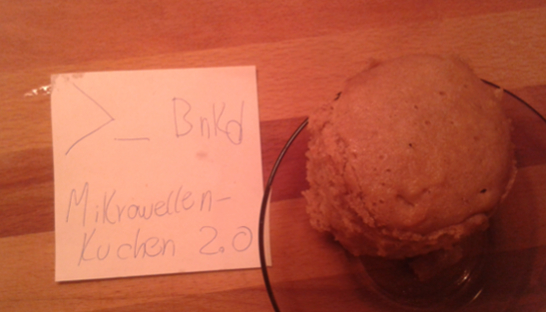 >_ BnKd
Mikrowellen-
Kuchen 2.0